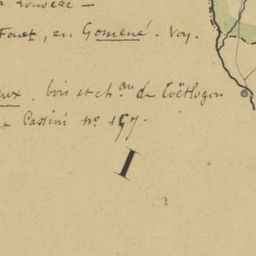 Fouet, en Gomené. Voy.
bois et ch.au de Coëtlogon
Cassini nº 157.
I